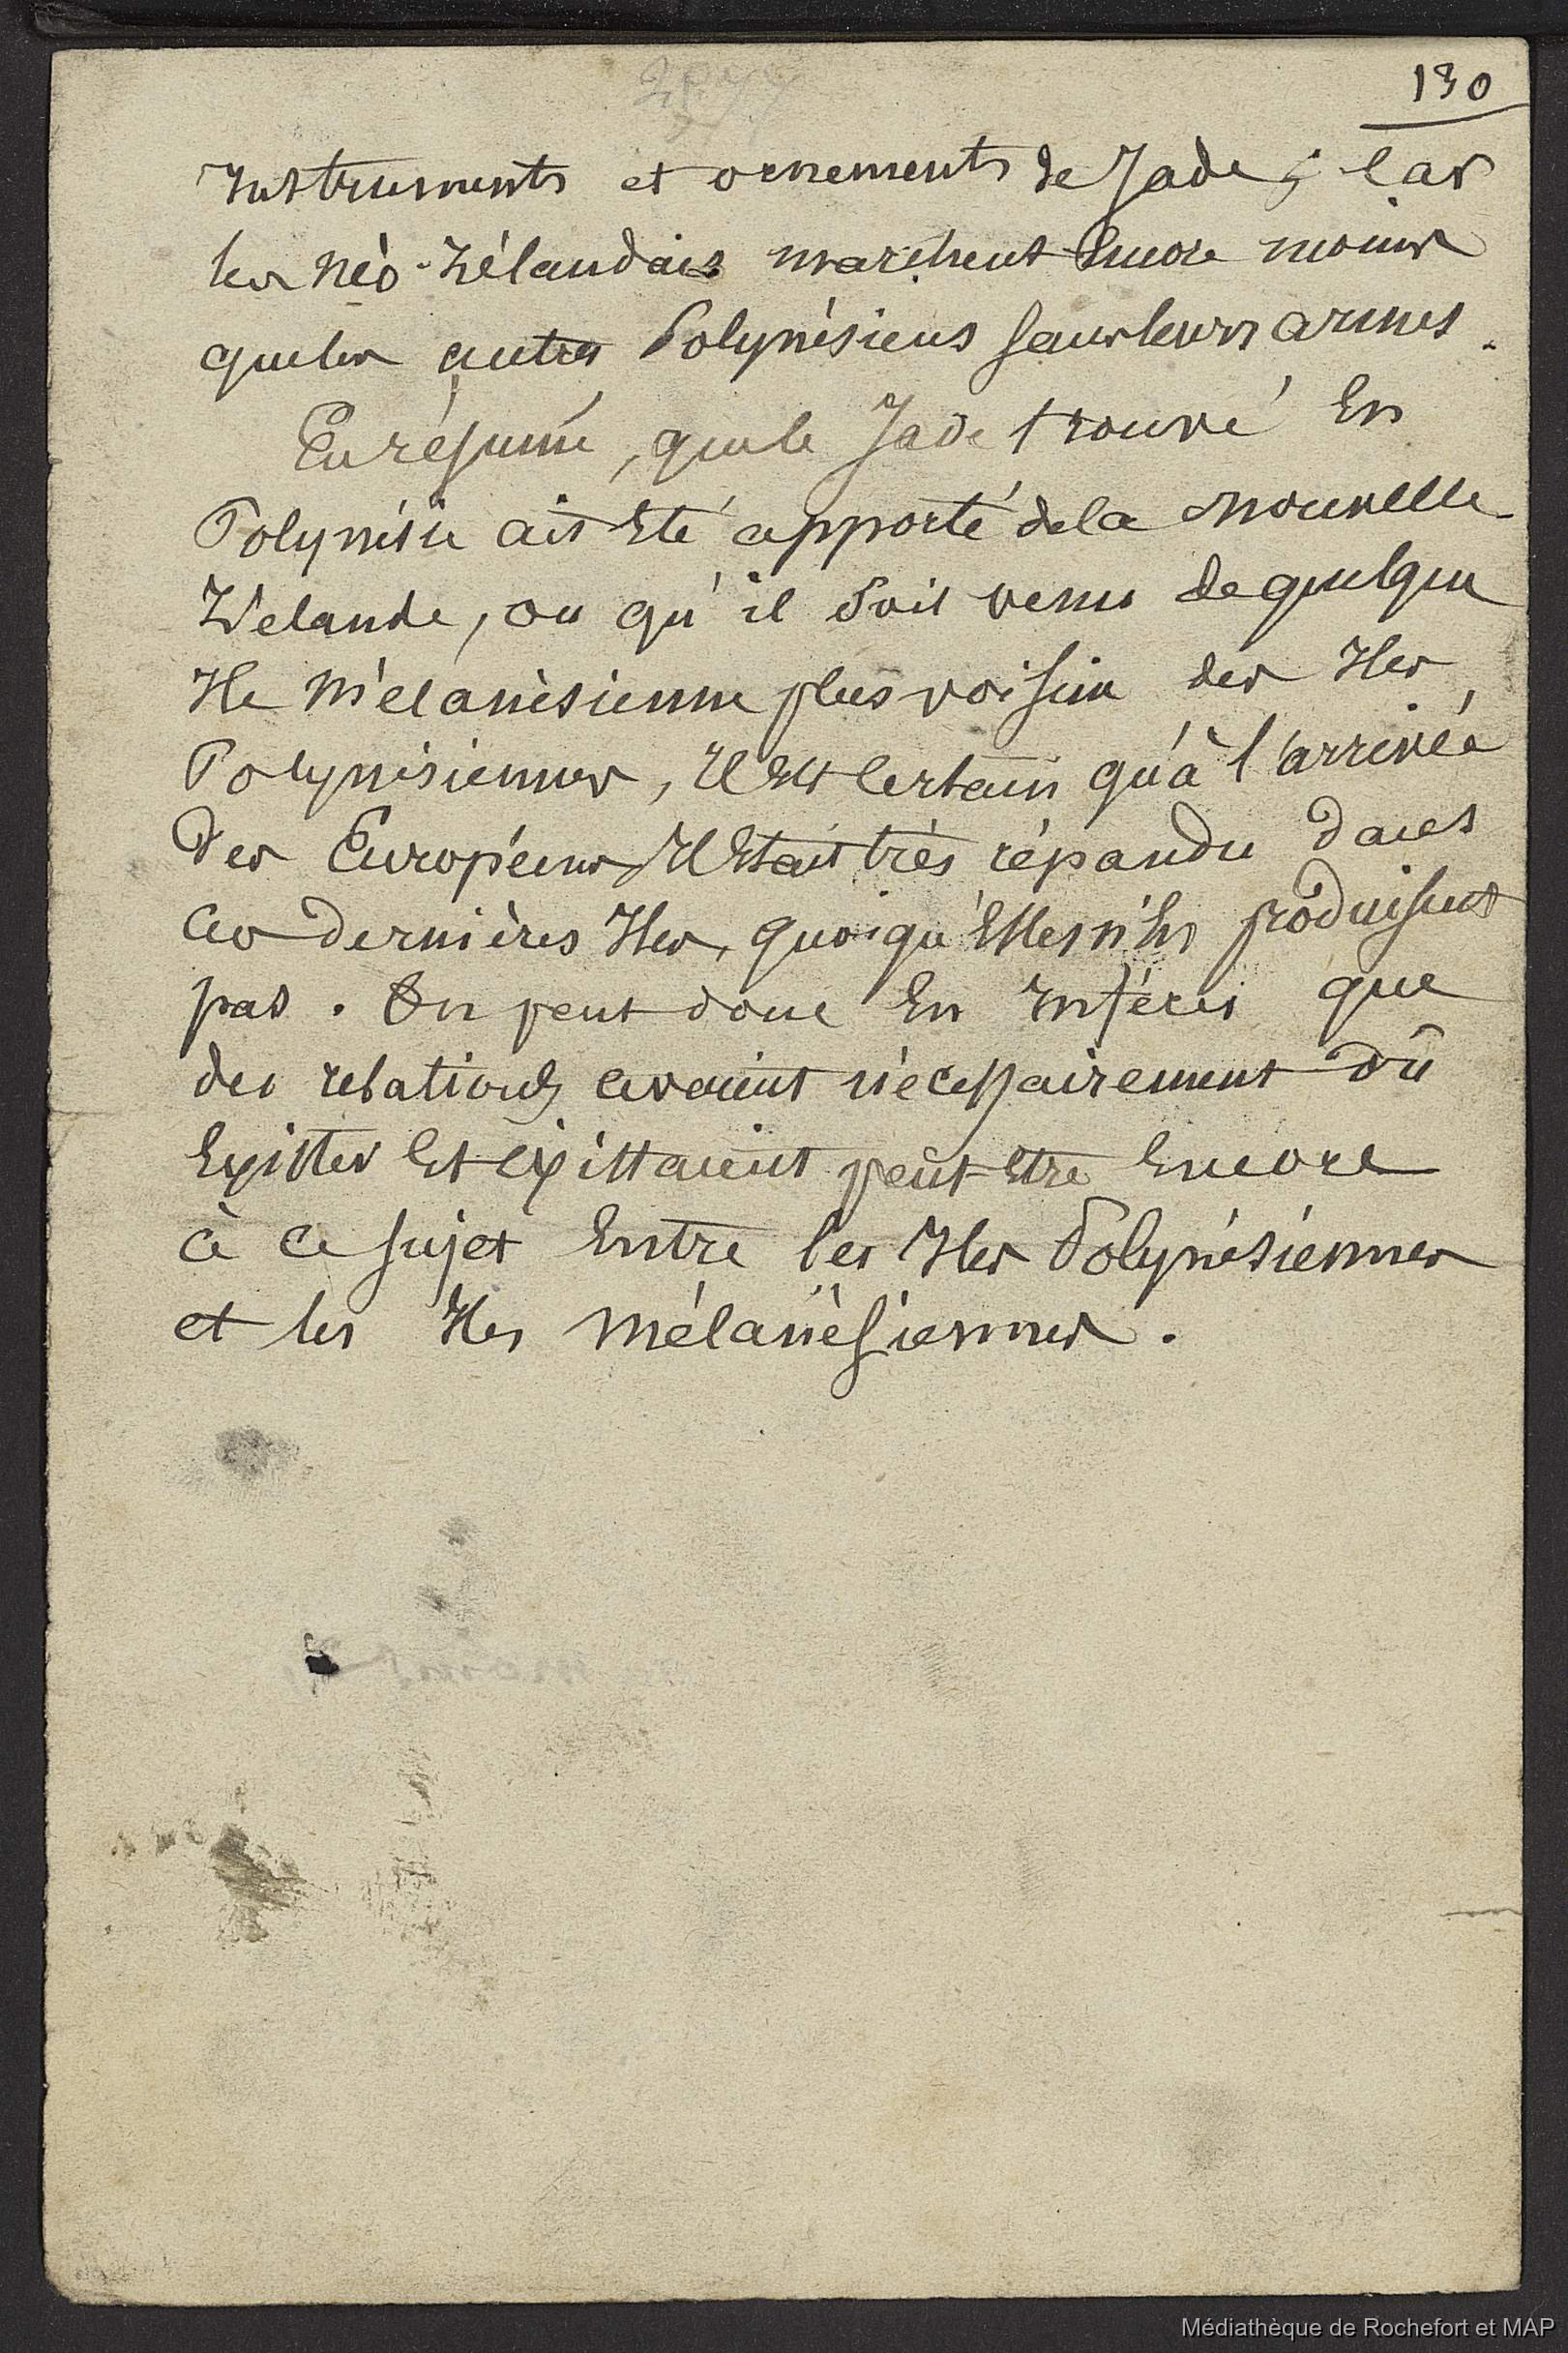 130
Instruments et ornements de Jade ; Car
les Néo-Zélandais marchent Encore moins
que les autres Polynésiens sans leurs armes.
En résumé, que le Jade trouvé En
Polynésie ait Eté apporté de la Nouvelle
Zélande, ou qu'il soit venu de quelque
Ile Mélanésienne plus voisine des Iles
Polynésiennes, Il Est Certain qu'à l'arrivée
des Européens Il Etait très répandu dans
Ces dernières Iles, quoiqu'Elles n'En produisent
pas. On peut donc En Inférer que
des relations avaient nécessairement dû
Exister Et Existaient peut-Etre Encore
à ce sujet Entre les Iles Polynésiennes
et les Iles Mélanésiennes.
Médiathèque de Rochefort et MAP